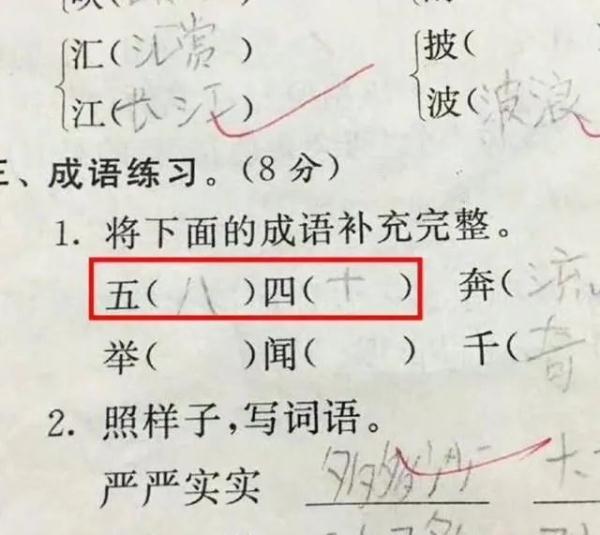 汇(汇赏) 披(
江(长江) 波(波浪
三、成语练习。(8分)
1. 将下面的成语补充完整。
五(八)四(十) 奔(流
举( )闻( ) 千(奇
2. 照样子,写词语。
严严实实